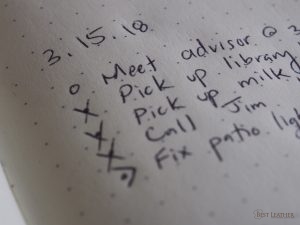 3.15.18
o Meet advisor @ 3
x Pick up library
x Pick up milk
x Call Jim
Fix patio